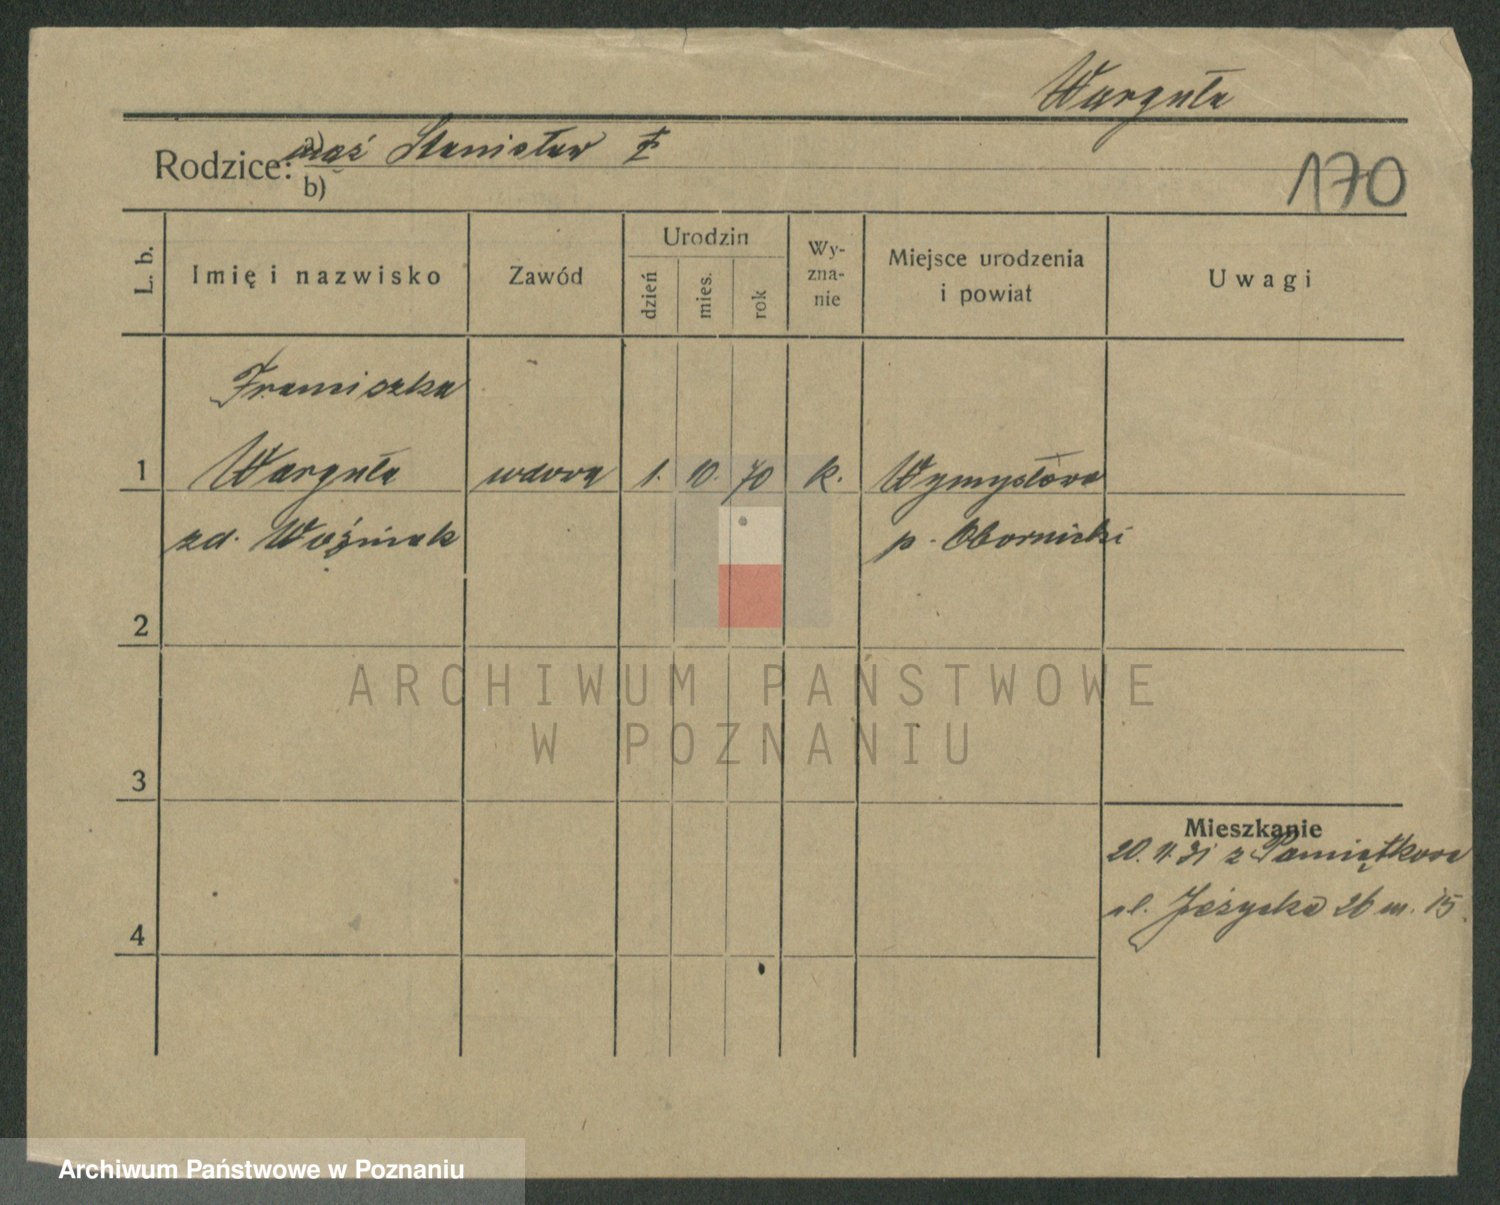 Warguła
Rodzice: a) mąż Stanisław
b)
170
L. b.
Imię i nazwisko
Zawód
Urodzin
dzień
mies.
rok
Wy-
zna-
nie
Miejsce urodzenia
i powiat
Uwagi
Franciszka
1 Warguła wdowa 1. 10. 70 k. Wymysłowo
zd. Woźniak p. Obornicki
2
ARCHIWUM PAŃSTWOWE
W POZNANIU
3
Mieszkanie
20. 11. 31 z Pamiątkowa
ul. Jeżycka 26 m. 15.
4
Archiwum Państwowe w Poznaniu